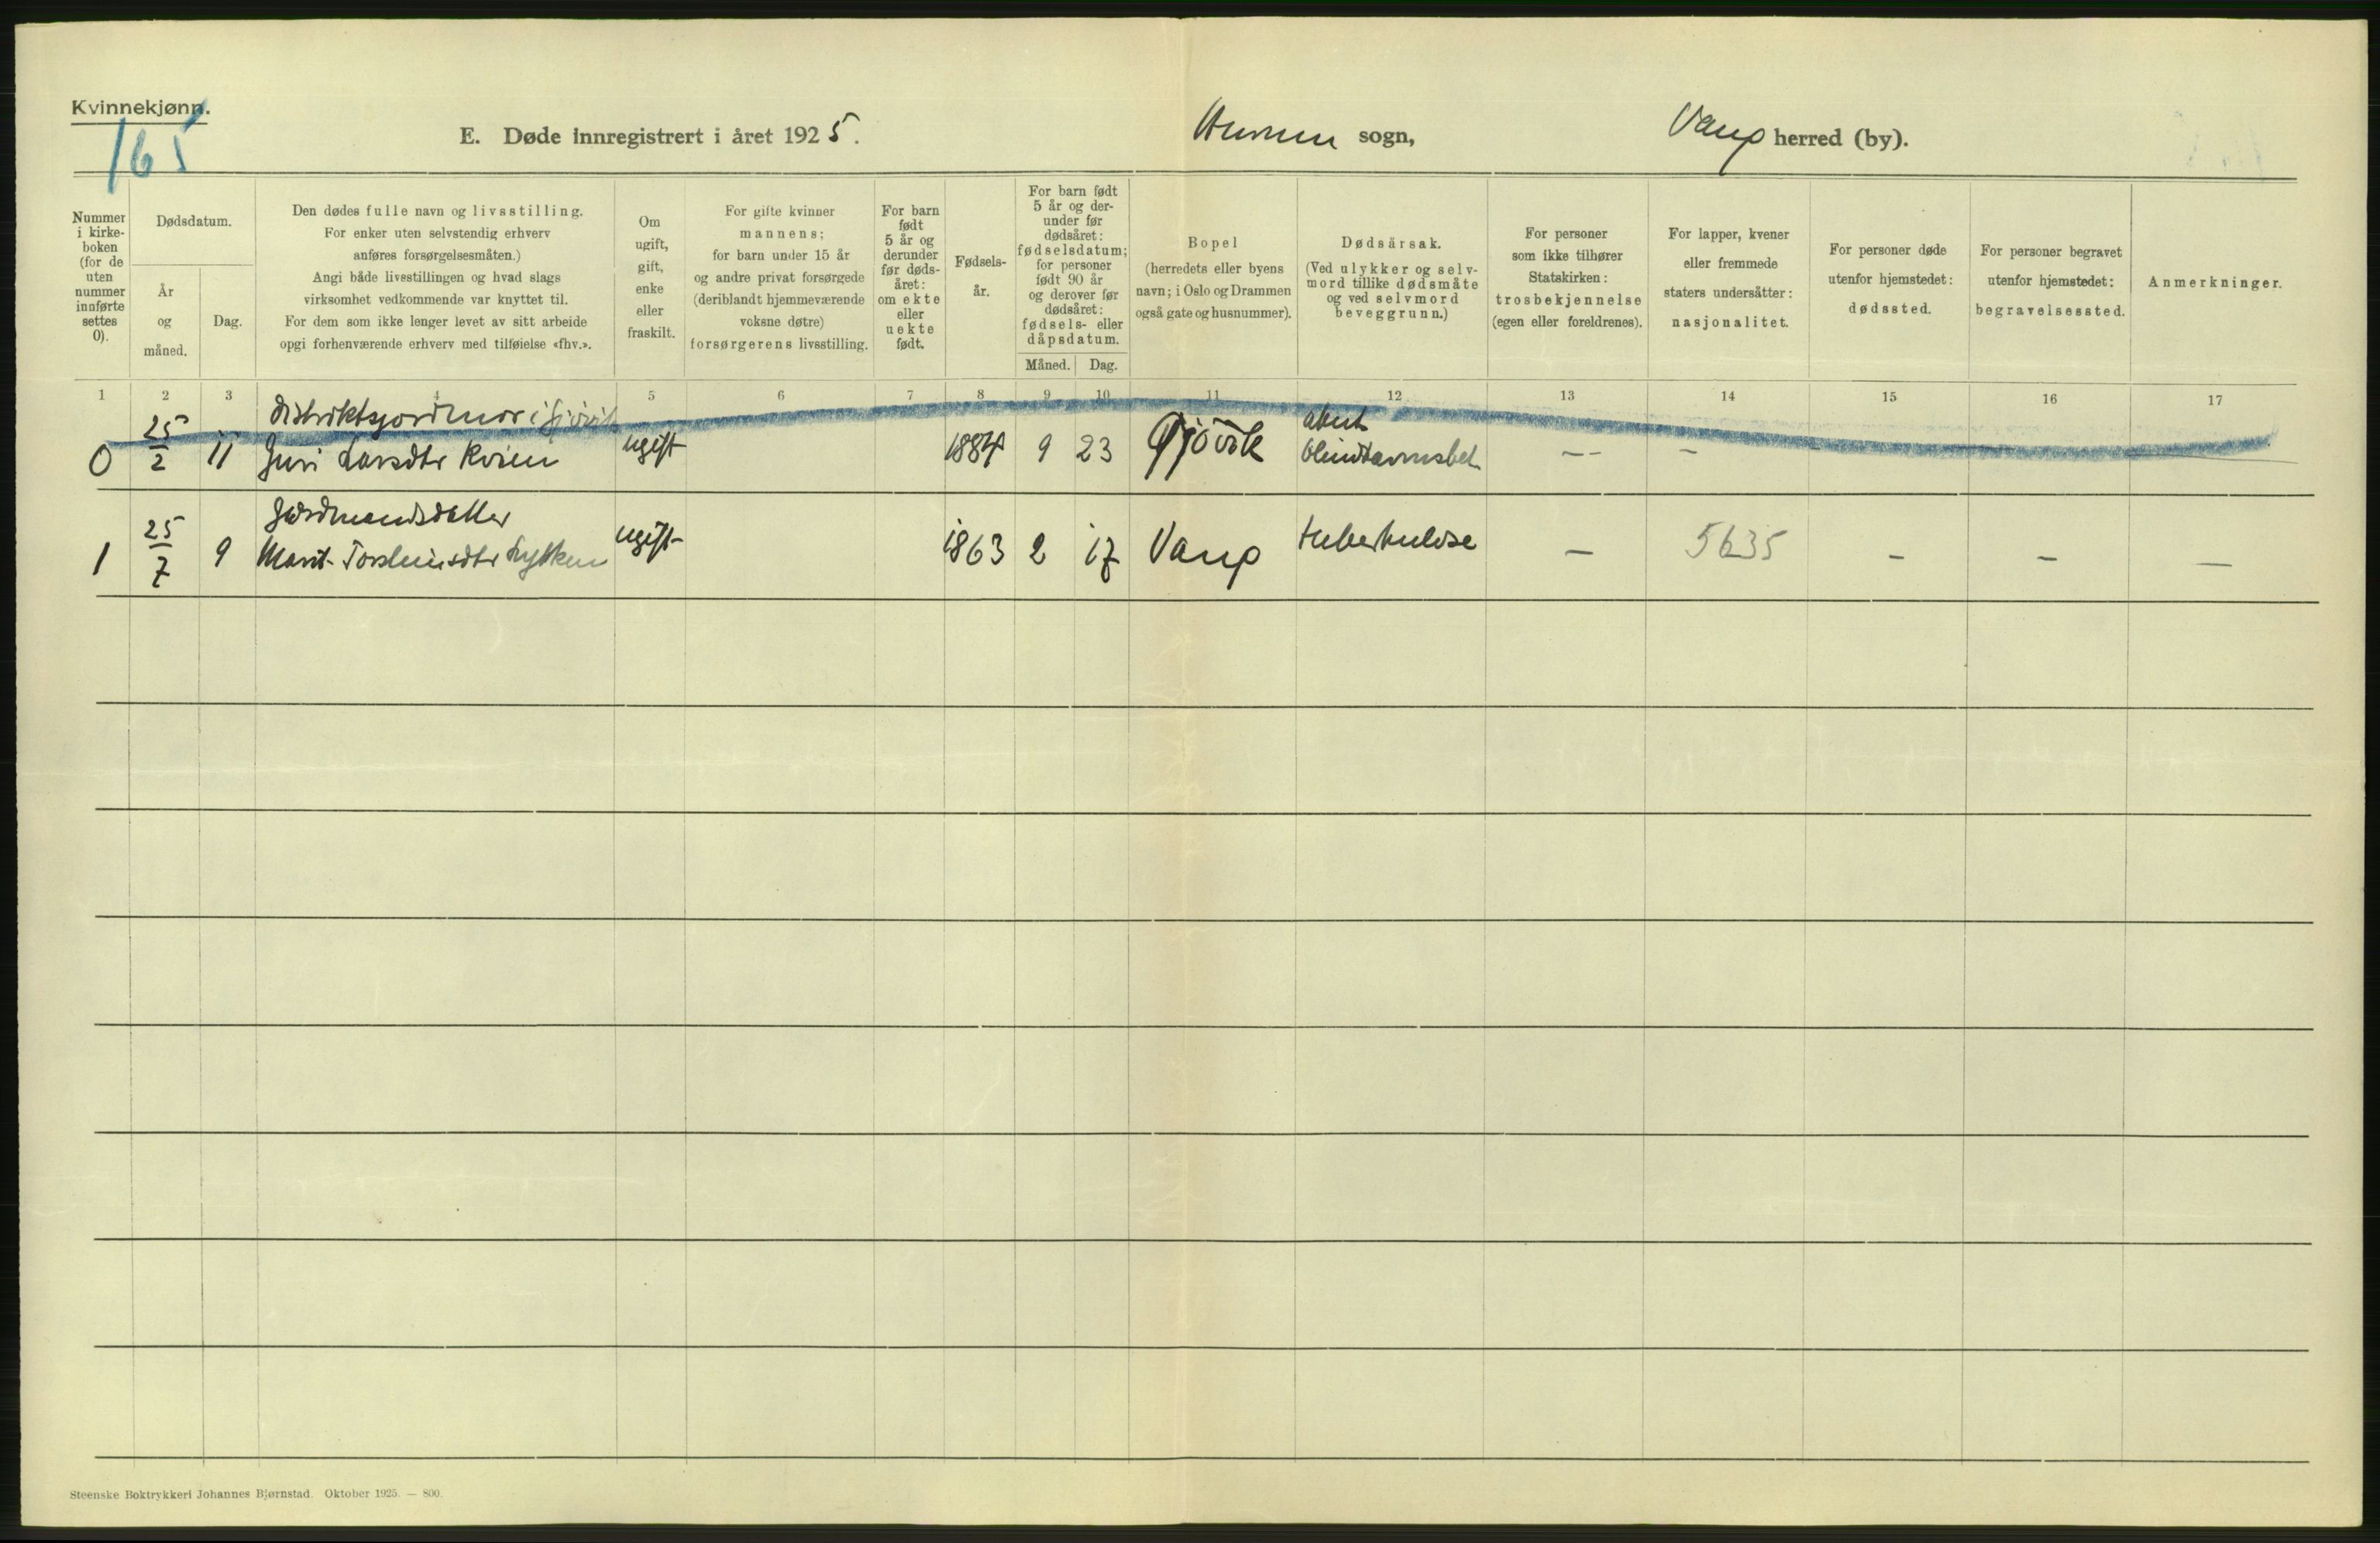 Kvinnekjønn.
165
E. Døde innregistrert i året 1925. sogn, Vang herred (by).
Nummer
i kirke-
boken
(for de
uten
nummer
innførte
settes
0).
Dødsdatum.
År
og
måned.
Dag.
Den dødes fulle navn og livsstilling.
For enker uten selvstendig erhverv
anføres forsørgelsesmåten.)
Angi både livsstillingen og hvad slags
virksomhet vedkommende var knyttet til.
For dem som ikke lenger levet av sitt arbeide
opgi forhenværende erhverv med tilføielse «fhv.».
Om
ugift,
gift,
enke
eller
fraskilt.
For gifte kvinner
mannens;
for barn under 15 år
og andre privat forsørgede
(deriblandt hjemmeværende
voksne døtre)
forsørgerens livsstilling.
For barn
født
5 år og
derunder
før døds-
året:
om ekte
eller
uekte
født.
Fødsels-
år.
For barn født
5 år og der-
under før
dødsåret:
fødselsdatum;
for personer
født 90 år
og derover før
dødsåret:
fødsels- eller
dåpsdatum.
Måned. Dag.
Bopel
(herredets eller byens
navn; i Oslo og Drammen
også gate og husnummer).
Dødsårsak.
(Ved ulykker og selv-
mord tillike dødsmåte
og ved selvmord
beveggrunn.)
For personer
som ikke tilhører
Statskirken:
trosbekjennelse
(egen eller foreldrenes).
For lapper, kvener
eller fremmede
staters undersåtter:
nasjonalitet.
For personer døde
utenfor hjemstedet:
dødssted.
For personer begravet
utenfor hjemstedet:
begravelsessted.
Anmerkninger.
1 2 3 4 5 6 7 8 9 10 11 12 13 14 15 16 17
distriktsjordmor i Gjövik
0 25/2 11 Guri Larsdtr Kvien ugift 1884 9 23 Gjövik akut blindtarmsbet. -- -
Gårdmandsdatter
1 25/7 9 Marit Torsteinsdtr ugift 1863 2 17 Vang tuberkulose - 5635 - - -
Steenske Boktrykkeri Johannes Bjørnstad. Oktober 1925. — 800.